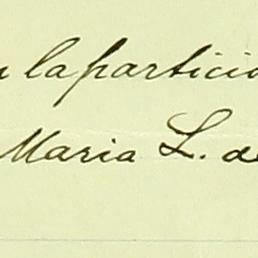 n la particio
Maria L. de